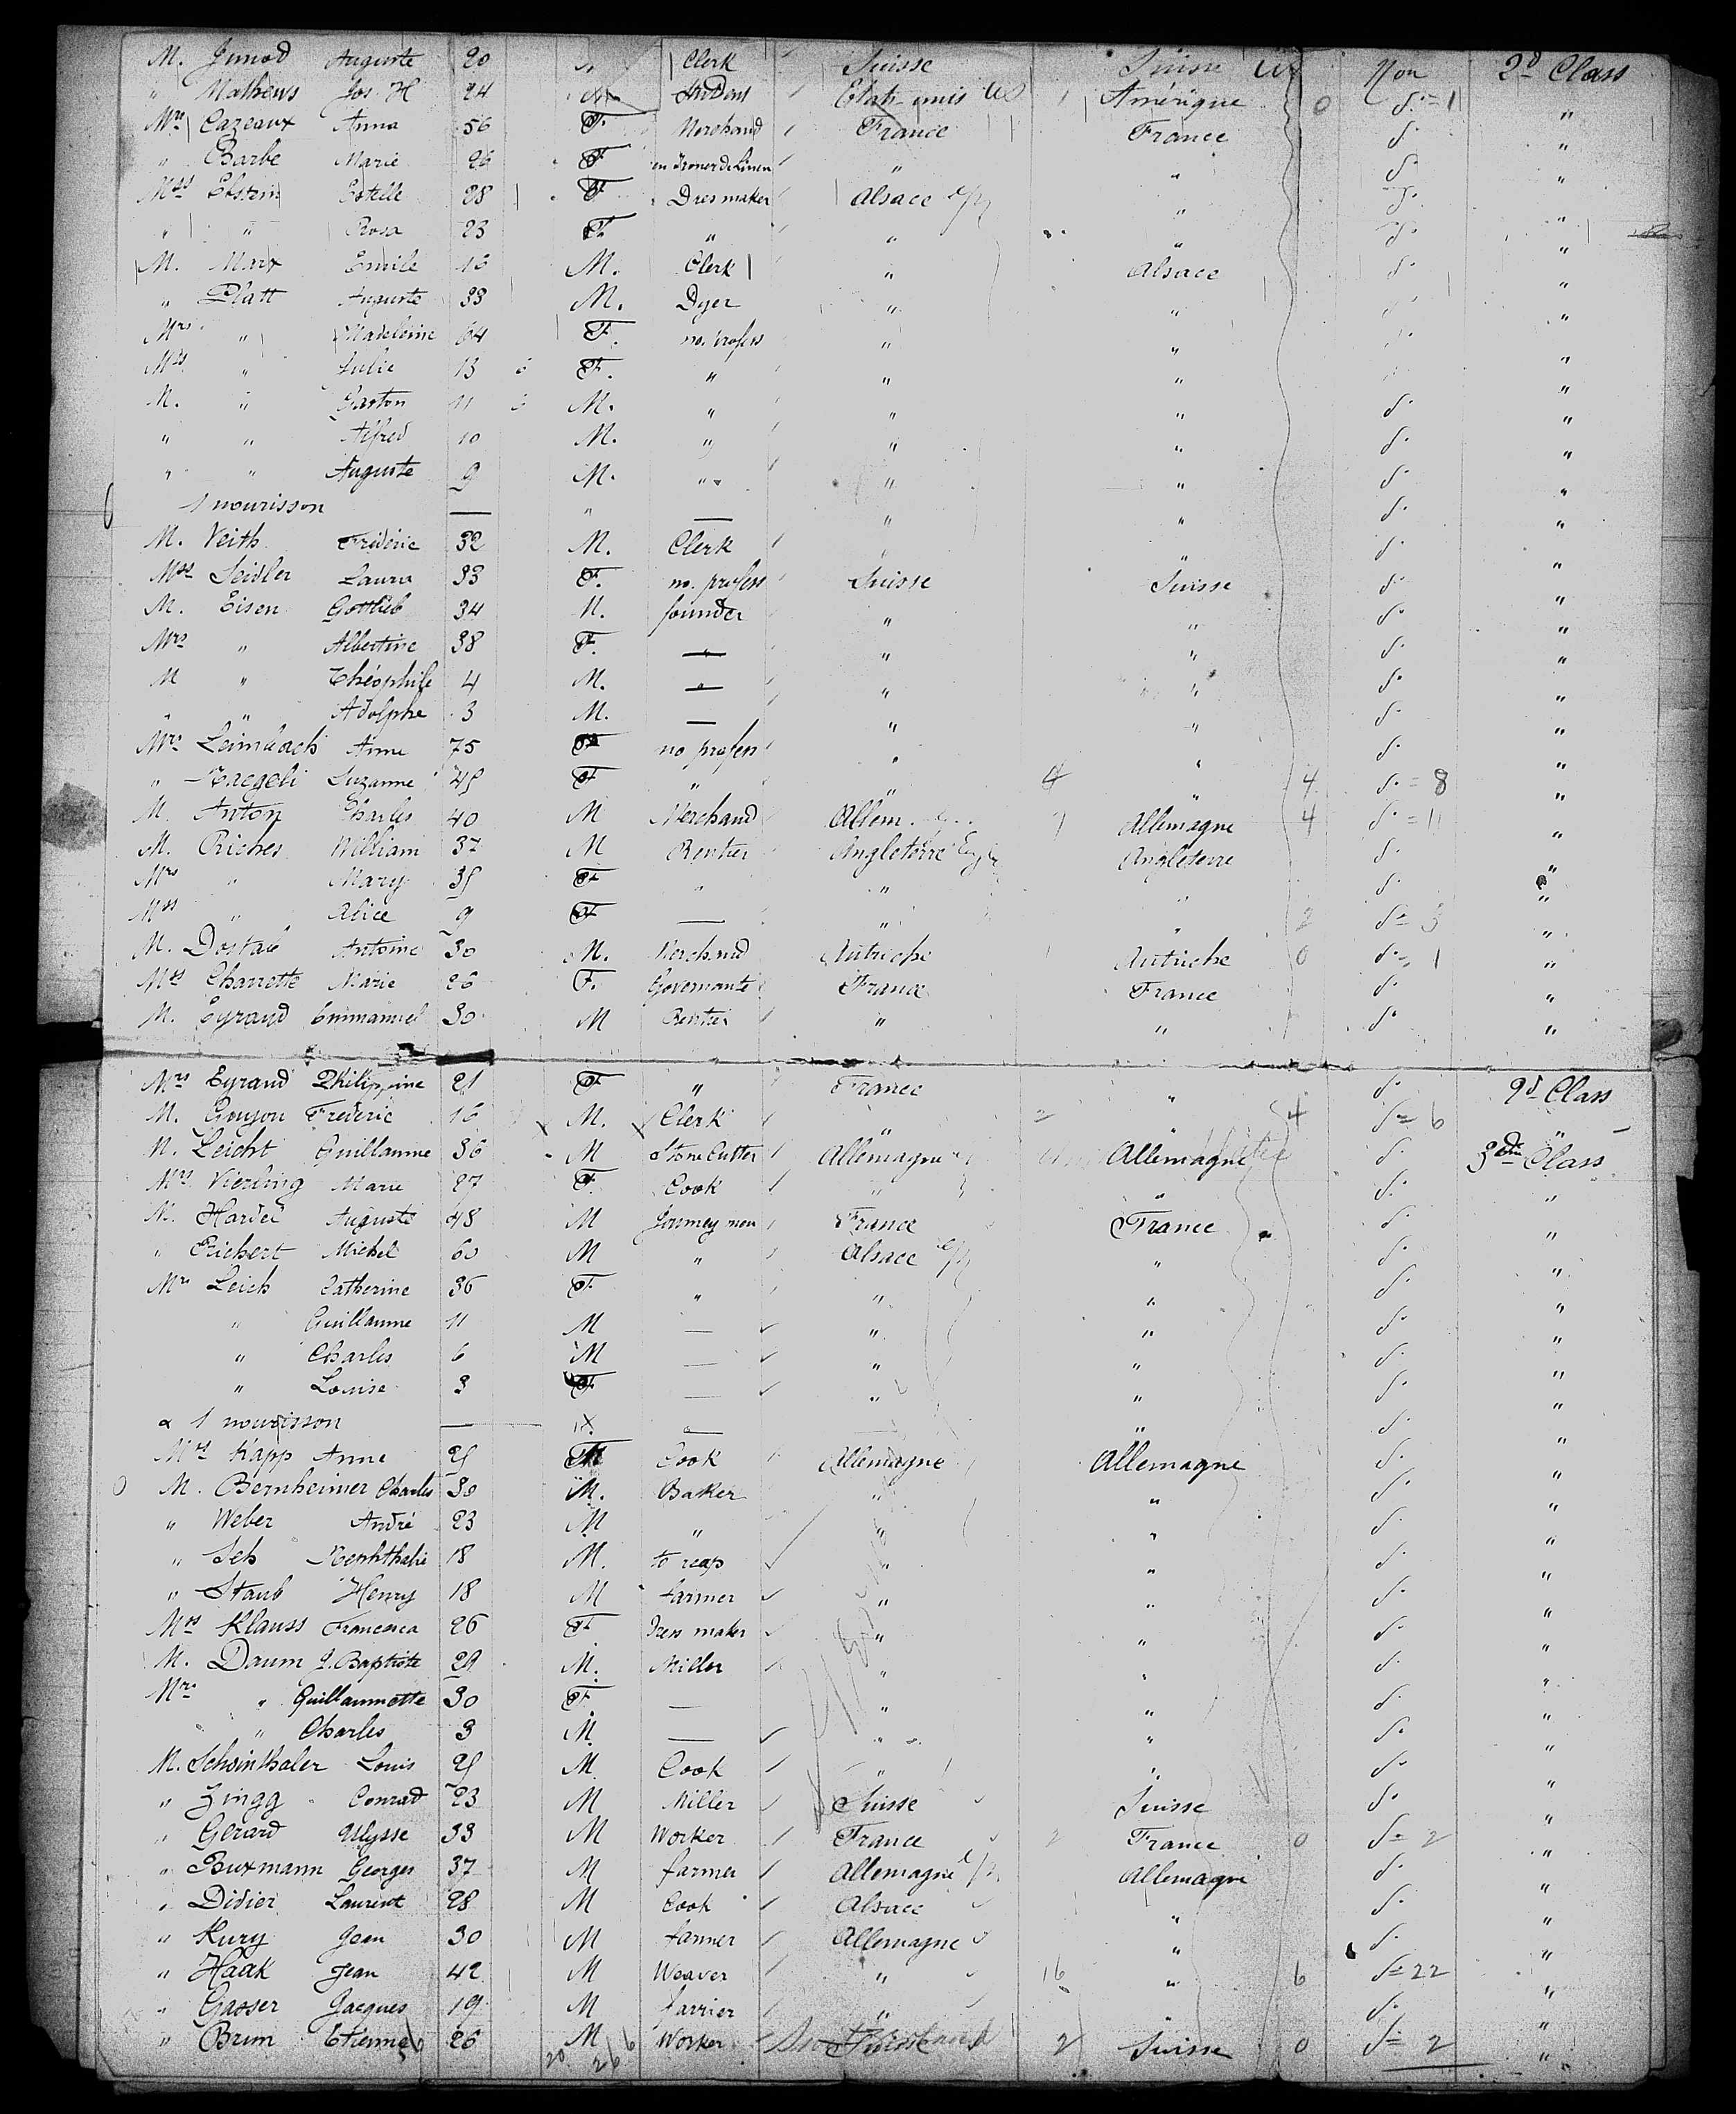 M. Junod Auguste 20 " Clerk Suisse Suisse Non 2d Class
" Mathews Jos. H 24 Student Etats-unis US Amérique 0 d° = 1 "
Mrs Cazeaux Anna 56 F. Merchand France France d° "
" Barbe Marie 26 F " " d° "
Mss Ebstein Estelle 28 F Dresmaker Alsace " d° "
" " Rosa 23 F. " " " d° "
M. Marx Emile 16 M. Clerk " Alsace d° "
" Platt Auguste 33 M. Dyer " " d° "
Mrs " Madeleine 64 F. no. profess " " "
Mss " Julie 13 F. " " " "
M. " Gaston 11 M. " " " d° "
" " Alfred 10 M. " " " d° "
" " Auguste 9 M. " " " d° "
1 nourisson — " — " " d° "
M. Veith Frédéric 32 M. Clerk " d° "
Mss Seidler Laura 33 F. no. profess Suisse Suisse d° "
M. Eisen Gottlieb 34 M. founder " " d° "
Mrs " Albertine 38 F. — " " d° "
M " Théophile 4 M. — " " d° "
" " Adolphe 3 M. — " " d° "
Mrs Leimbach Anna 75 F no profess " " d° "
" Naegeli Suzanne 45 F " " 4 " 4 d° = 8 "
M. Anton Charles 40 M Merchand Allem. 7 Allemagne 4 d° = 11 "
M. Riches William 37 M Rentier Angleterre Angleterre d° "
Mrs " Mary 35 F " " " d° "
Mss " Alice 9 F. — " " 2 d° = 3 "
M. Dostal Antoine 30 M. Merchand Autriche Autriche 0 d° = 1 "
Mss Charrette Marie 26 F. Governante France France d° "
M. Eyraud Emmanuel 30 M Rentier " " d° "
Mrs Eyraud Philippine 21 F " France " d° 2d Class
M. Goujon Frederic 16 M. Clerk " 2 " 4 d° = 6 "
M. Leicht Guillaume 36 M Stone Cutter Allemagne Allemagne d° 3d Class
Mrs Viering Marie 27 F. Cook " " d° "
M. Harder Auguste 48 M Journey men France France d° "
" Richert Michel 60 M " Alsace " d° "
Mrs Leich Catherine 36 F " " " d° "
" Guillaume 11 M — " " d° "
" Charles 6 M — " " d° "
" Louise 3 F. — " " d° "
1 nourisson — — " d° "
Mrs Kapp Anne 25 Cook Allemagne Allemagne d° "
M. Bernheimer Charles 30 M. Baker " " d° "
" Weber André 23 M " " " d° "
" Seb Nephthalie 18 M. to reap " " d° "
" Staub Henry 18 M farmer " " d° "
Mrs Klauss Francesca 26 F Dress maker " " d° "
M. Daum J. Baptiste 29 M. Miller " " d° "
Mrs " Guillaumette 30 F. — " " d° "
" Charles 3 M. — " " d° "
M. Schointhaler Louis 25 M Cook " " d° "
" Zingg Conrad 23 M Miller Suisse Suisse d° "
" Gerard Ulysse 33 M Worker France 2 France 0 d° = 2 "
" Buxmann Georges 37 M farmer Allemagne Allemagne d° "
" Didier Laurent 28 M Cook Alsace " d° "
" Kury Jean 30 M tanner Allemagne " d° "
" Haak Jean 42 M Weaver " 16 " 6 d° = 22 "
" Gasser Jacques 19 M farrier " d° "
" Brun Etienne 26 M Worker Suisse 2 Suisse 0 d° = 2 "
20 26 6